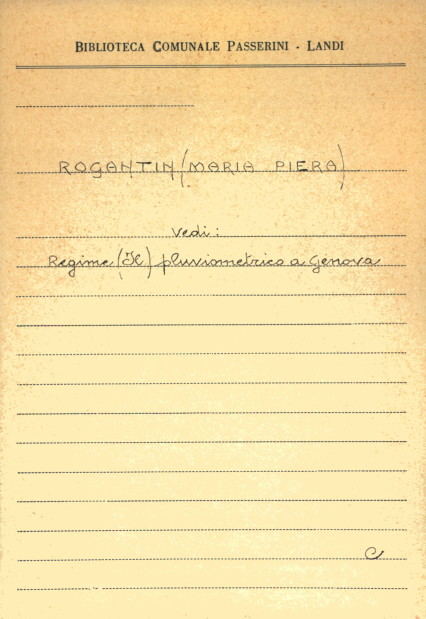 BIBLIOTECA COMUNALE PASSERINI - LANDI
ROGANTIN (MARIA PIERA)
vedi:
Regime (Il) pluviometrico a Genova
C